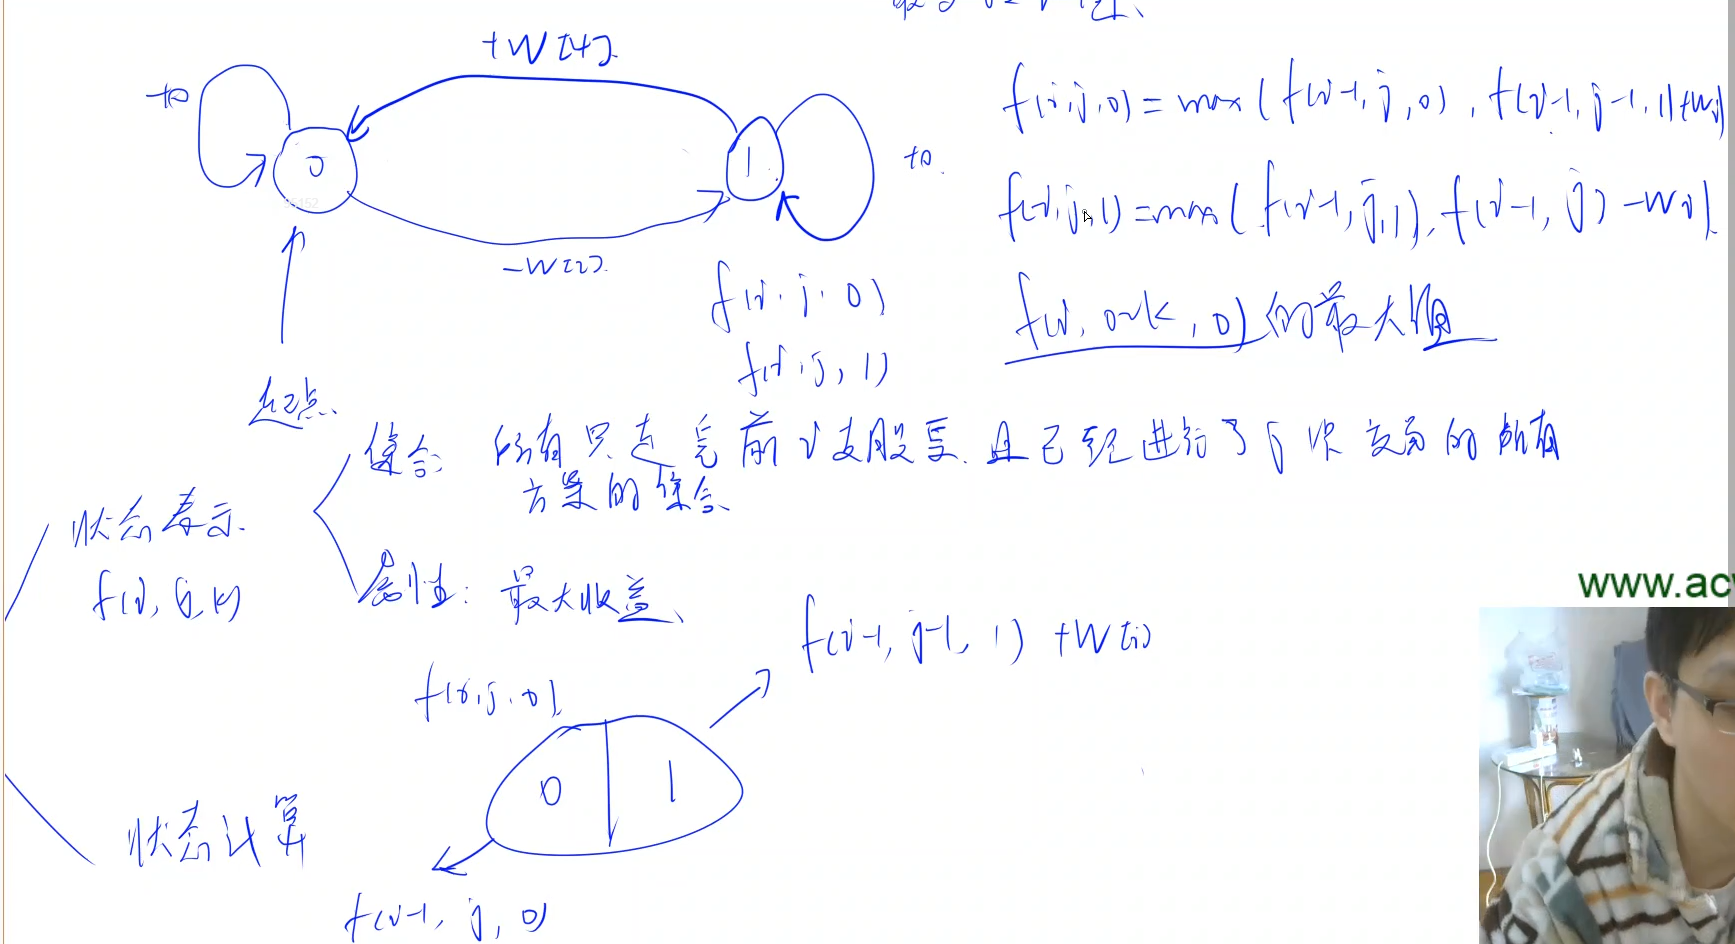 +W[i].
+0
0
1
+0.
-W[i].
起点.
f(i, j, 0)
f(i, j, 1)
f(i, j, 0) = max ( f(i-1, j, 0), f(i-1, j-1, 1)+wi)
f(i, j, 1) = max ( f(i-1, j, 1), f(i-1, j) -wi)
f(i, 0~k, 0) 的最大值
状态表示.
f(i, j, k)
集合: 所有只走完前i支股票. 且已经进行了j次交易的所有
方案的集合
属性: 最大收益、
f(i, j, 0).
f(i-1, j-1, 1) +W(i)
0
1
状态计算
f(i-1, j, 0)
www.ac